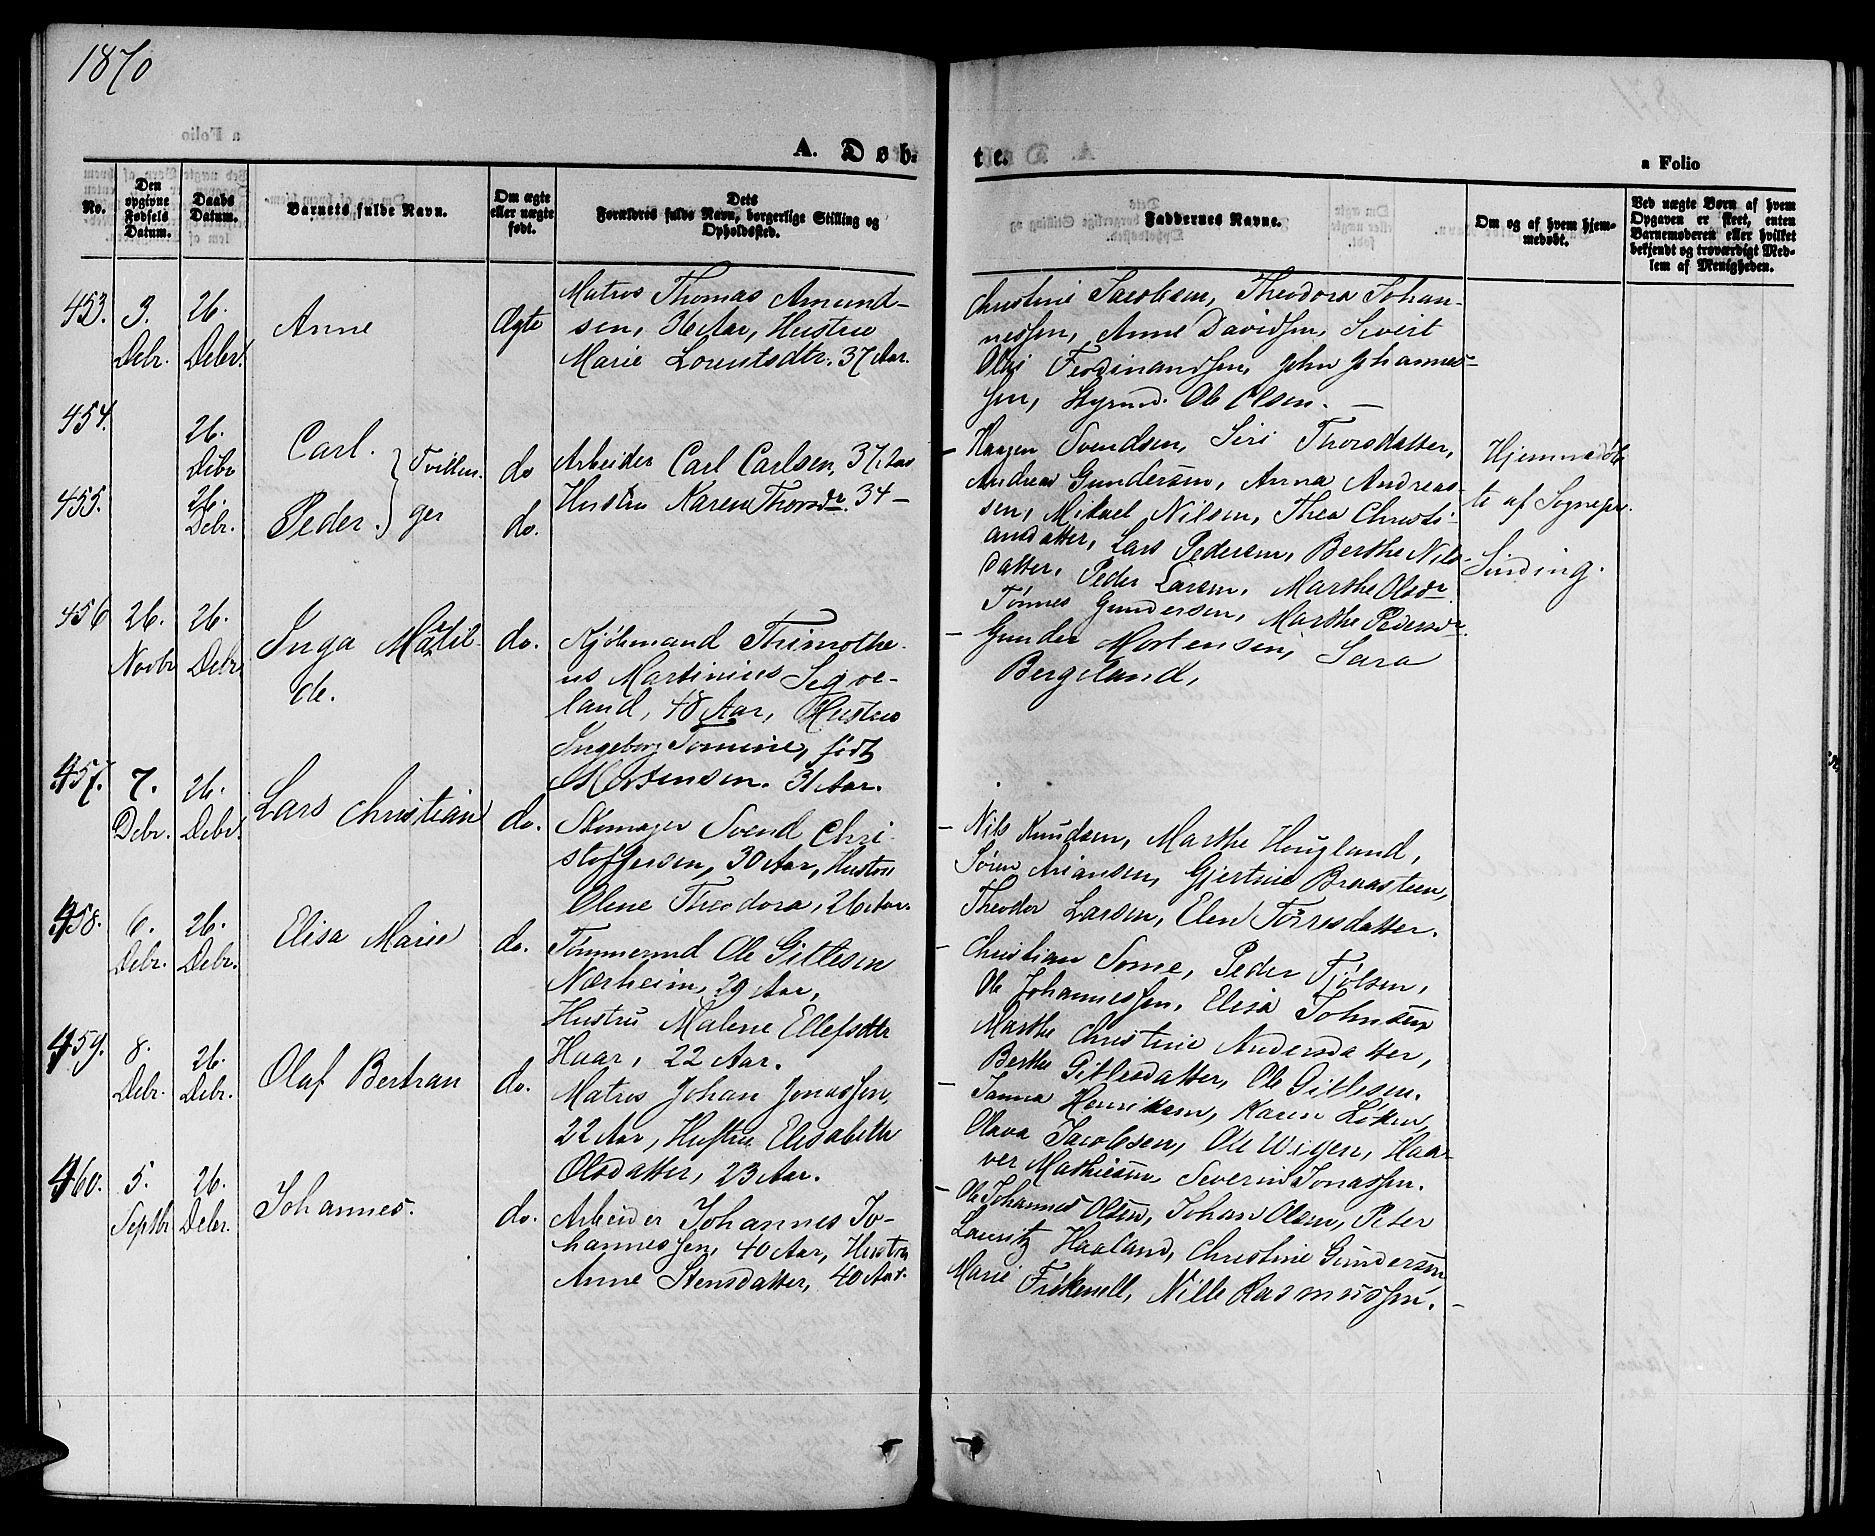 1870
A. Døb-
te.
a Folio
No.
Den opgivne Fødsels Datum.
Daabs Datum.
Barnets fulde Navn.
Om ægte eller uægte født.
Dets Forældres fulde Navn, borgerlige Stilling og Opholdssted.
Faddernes Navne.
Om og af hvem hjemmedøbt.
Ved uægte Børn af hvem Opgaven er skeet, enten Barnemoderen eller hvilket bekjendt og troværdigt Medlem af Menigheden.
453. 3. Debr. 26. Debr. Anne Ægte
Matros Thomas Amund-
sen, 36 Aar, Hustru
Marie Lorentsdtr. 37 Aar.
Christine Jacobsen, Theodora Johan-
nessen, Anne Davidsen, Sivert
Olai Ferdinandsen, John Johannes-
sen, Styrmd. Ole Olsen. —
454. 26. Debr Carl. } Tvillin- do
455. 26. Debr. Peder. } ger do.
Arbeider Carl Carlsen, 37 Aar
Hustru Karen Thorsdr. 34 —
— Haagen Svendsen, Siri Thorsdatter,
Andreas Gundersen, Anna Andreas-
sen, Mikael Nilsen, Thea Christi-
andatter, Lars Pedersen, Berthe Nils-
datter, Peder Larsen, Marthe Olsdr
Tønnes Gundersen, Marthe Pedersdr.
Hjemmedøb
te af Sognepr.
Sinding.
456 26. Novbr 26. Debr Inga Matil-
de. do.
Kjøbmand Thimothe-
us Martinius Segve-
land, 48 Aar, Hustru
Ingeborg Tomine, født
Mortensen. 31 Aar.
— Gunder Mortensen, Sara
Bergeland,
457. 7. Debr. 26. Debr. Lars Christian do.
Skomager Svend Chri-
stoffersen, 30 Aar, Hustru
Olene Theodora, 26 Aar.
— Nils Knudsen, Marthe Hougland,
Søren Ariansen, Gjertrie Braasteen,
Theodor Larsen, Elen Torresdatter.
458. 6. Debr. 26. Debr. Elisa Marie do.
Tømmermd Ole Gitlesen
Nærheim, 29 Aar,
Hustru Malene Ellefsdtr
Haar, 22 Aar.
— Christian Somme, Peder Tjølsen,
Ole Johannessen, Elisa Johnsen
Marthe Christine Andersdatter,
Berthe Gitlesdatter, Ole Gitlesen.
459. 8. Debr. 26. Debr. Olaf Bertran do.
Matros Johan Jonassen,
22 Aar, Hustru Elisabeth
Olsdatter, 23 Aar.
— Janna Henriksen, Karen Løken,
Olava Jacobsen, Ole Wigen, Haa-
ver Mathiesen, Severin Jonassen.
460. 5. Septbr 26. Debr. Johannes. do.
Arbeider Johannes Jo-
hannessen, 40 Aar, Hustru
Anne Stensdatter, 40 Aar.
— Ole Johannes Olsen, Johan Olsen, Peter
Lauritz Haaland, Christine Gundersen
Marie Nille Rasmussen. —